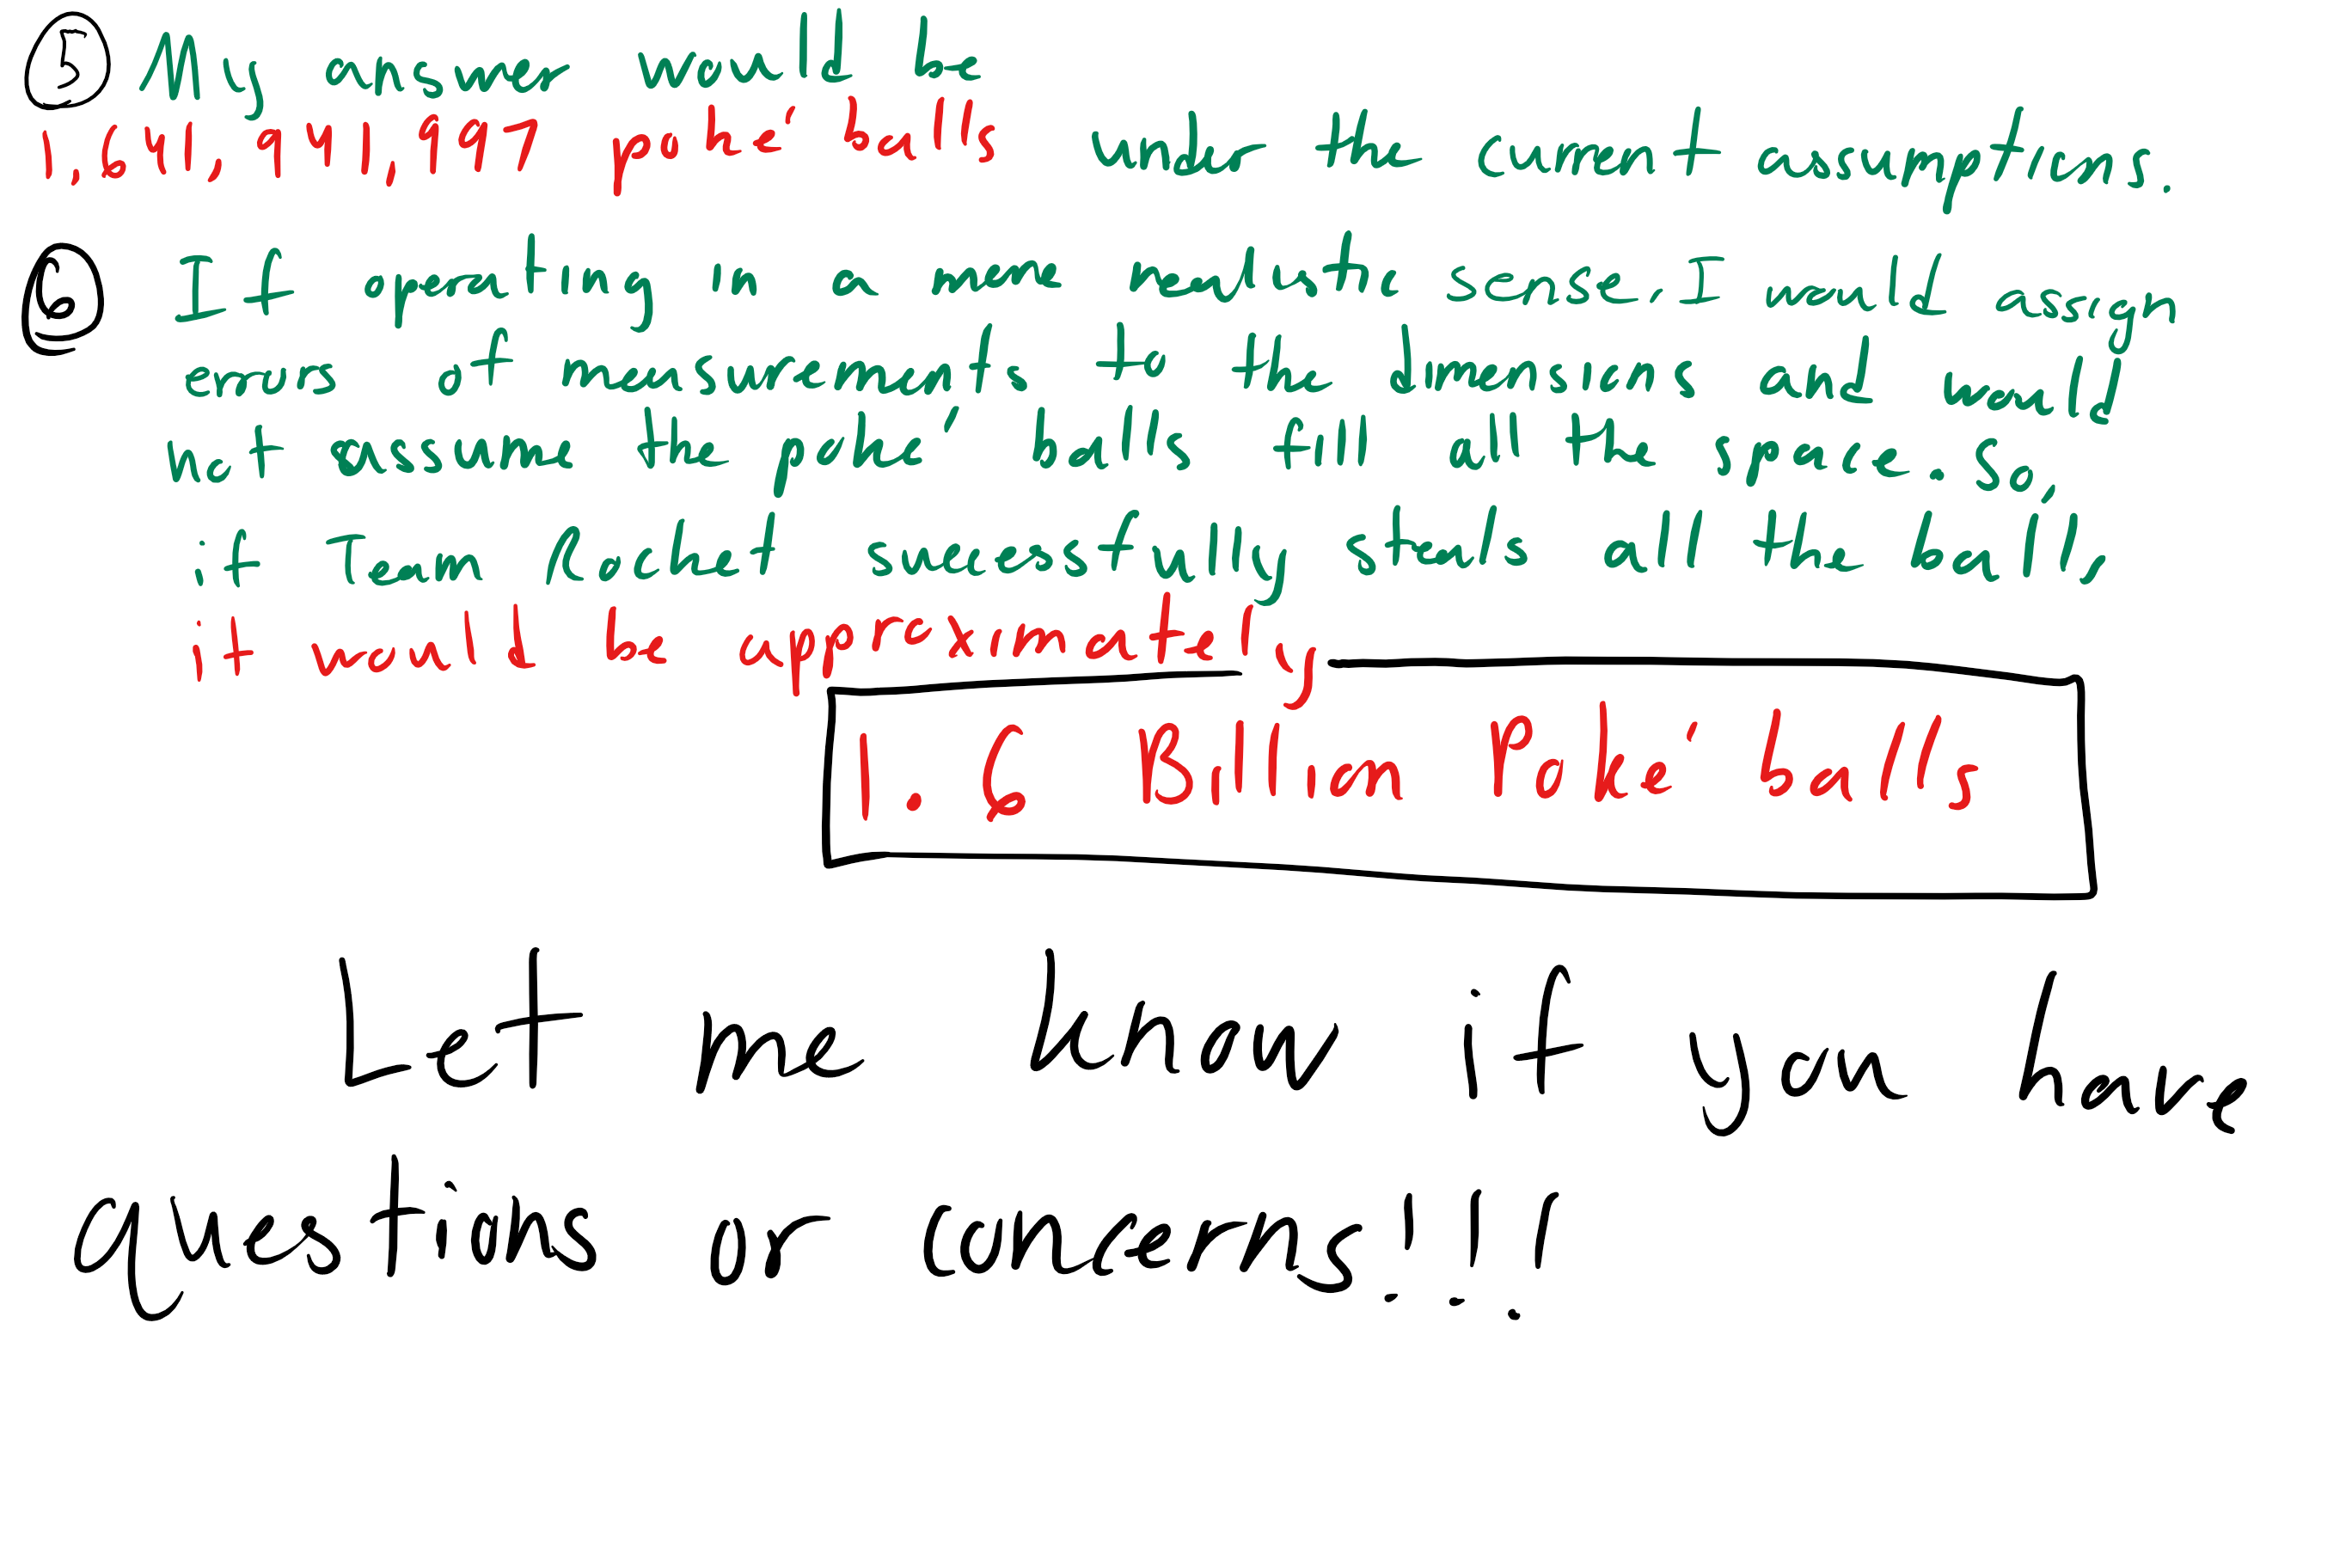 5 My answer would be
1,641,941,997 poké balls under the current assumptions.
6 If operating in a more realistic sense. I would assign
errors of measurements to the dimensions and would
not assume the poké balls fill all the space. So,
if Team Rocket successfully steals all the balls,
it would be approximately
1.6 Billion Poké balls
Let me know if you have
questions or concerns!!!